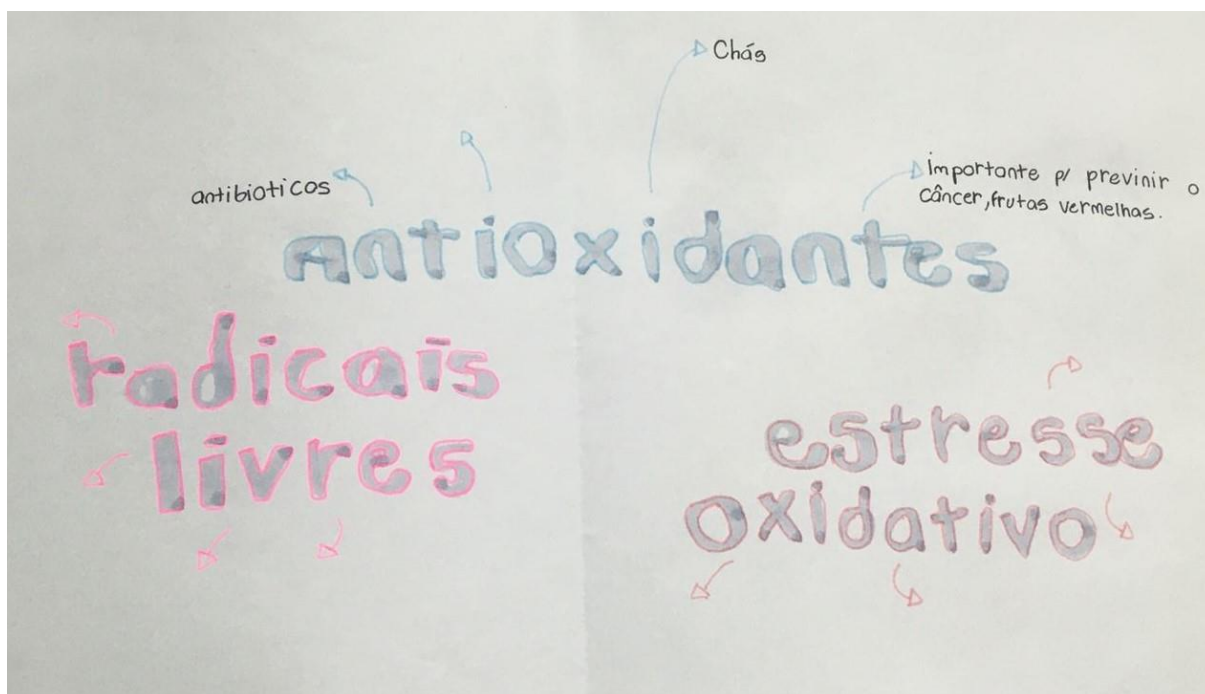 Chás
antibioticos
importante p/ previnir o
câncer, frutas vermelhas.
antioxidantes
radicais
livres
estresse
oxidativo